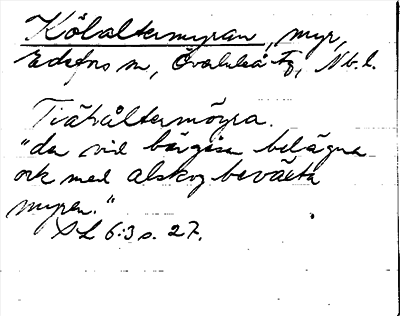 Kölaltermyran, myr,
Edefors sn, Överluleå tg, Nb. l.
Tiähåltermöyra.
"da vid bärgisa belägna
ock med alskog beväxta
myren."
SL 6:3 s. 27.